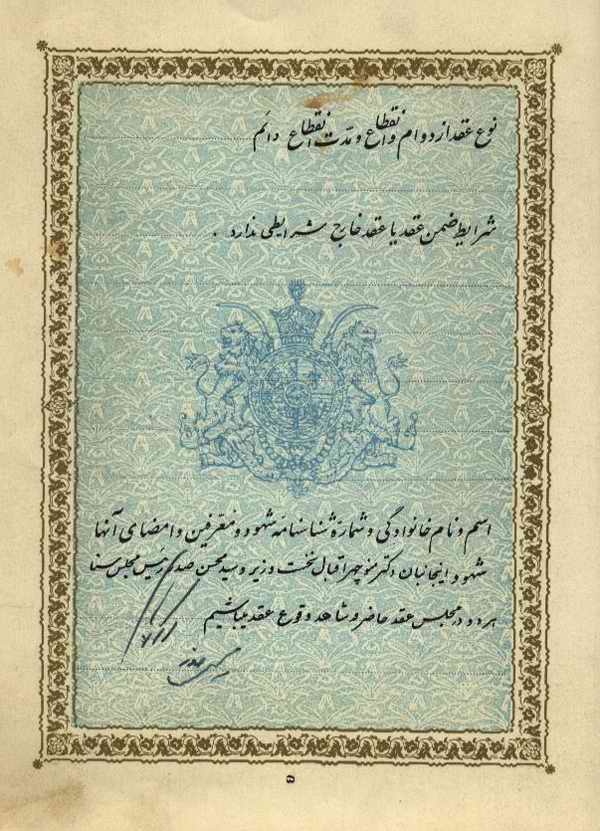 نوع عقد از دوام و انقطاع و مدت انقطاع دائم
شرایط ضمن عقد یا عقد خارج شرایطی ندارد .
اسم و نام خانوادگی و شمارهٔ شناسنامه شهود و معرفین و امضای آنها
شهود اینجانبان دکتر منوچهر اقبال نخست وزیر و سید محسن صدر رئیس مجلس سنا
هر دو در مجلس عقد حاضر و شاهد وقوع عقد میباشیم
۵